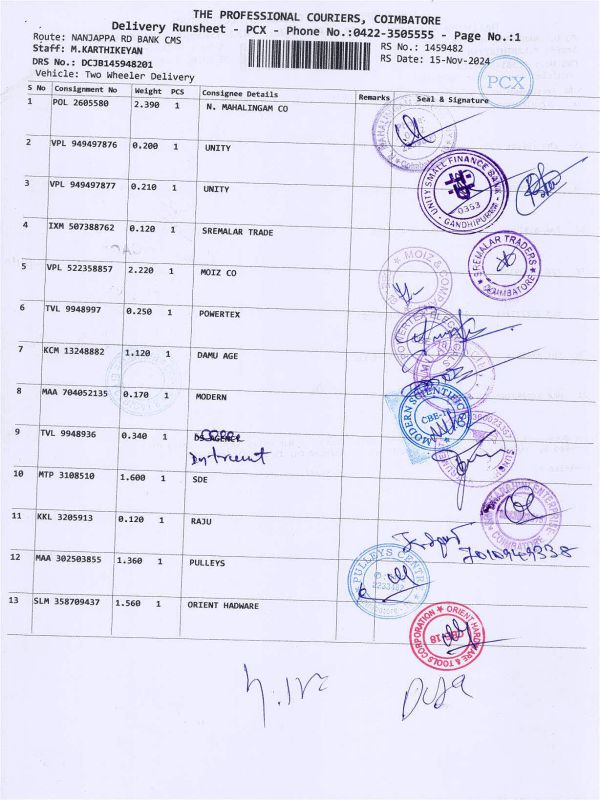 THE PROFESSIONAL COURIERS, COIMBATORE
Delivery Runsheet - PCX - Phone No.:0422-3505555 - Page No.:1
Route: NANJAPPA RD BANK CMS
RS No.: 1459482
Staff: M.KARTHIKEYAN
RS Date: 15-Nov-2024
DRS No.: DCJB145948201
Vehicle: Two Wheeler Delivery
PCX
S No Consignment No Weight PCS Consignee Details Remarks Seal & Signature
1 POL 2605580 2.390 1 N. MAHALINGAM CO
2 VPL 949497876 0.200 1 UNITY
UNITY SMALL FINANCE BANK
0353
GANDHIPURAM
3 VPL 949497877 0.210 1 UNITY
4 IXM 507388762 0.120 1 SREMALAR TRADE
SREMALAR TRADERS
COIMBATORE
5 VPL 522358857 2.220 1 MOIZ CO
MOIZ &
6 TVL 9948997 0.250 1 POWERTEX
7 KCM 13248882 1.120 1 DAMU AGE
8 MAA 704052135 0.170 1 MODERN
MODERN SCIENTIFIC
9 TVL 9948936 0.340 1 DS AGENCY
10 MTP 3108510 1.600 1 SDE
ENTERPRISE
COIMBATORE
11 KKL 3205913 0.120 1 RAJU
7010949338
12 MAA 302503855 1.360 1 PULLEYS
PULLEYS CENTRE
13 SLM 358709437 1.560 1 ORIENT HADWARE
ORIENT HARDWARE & TOOLS CORPORATION